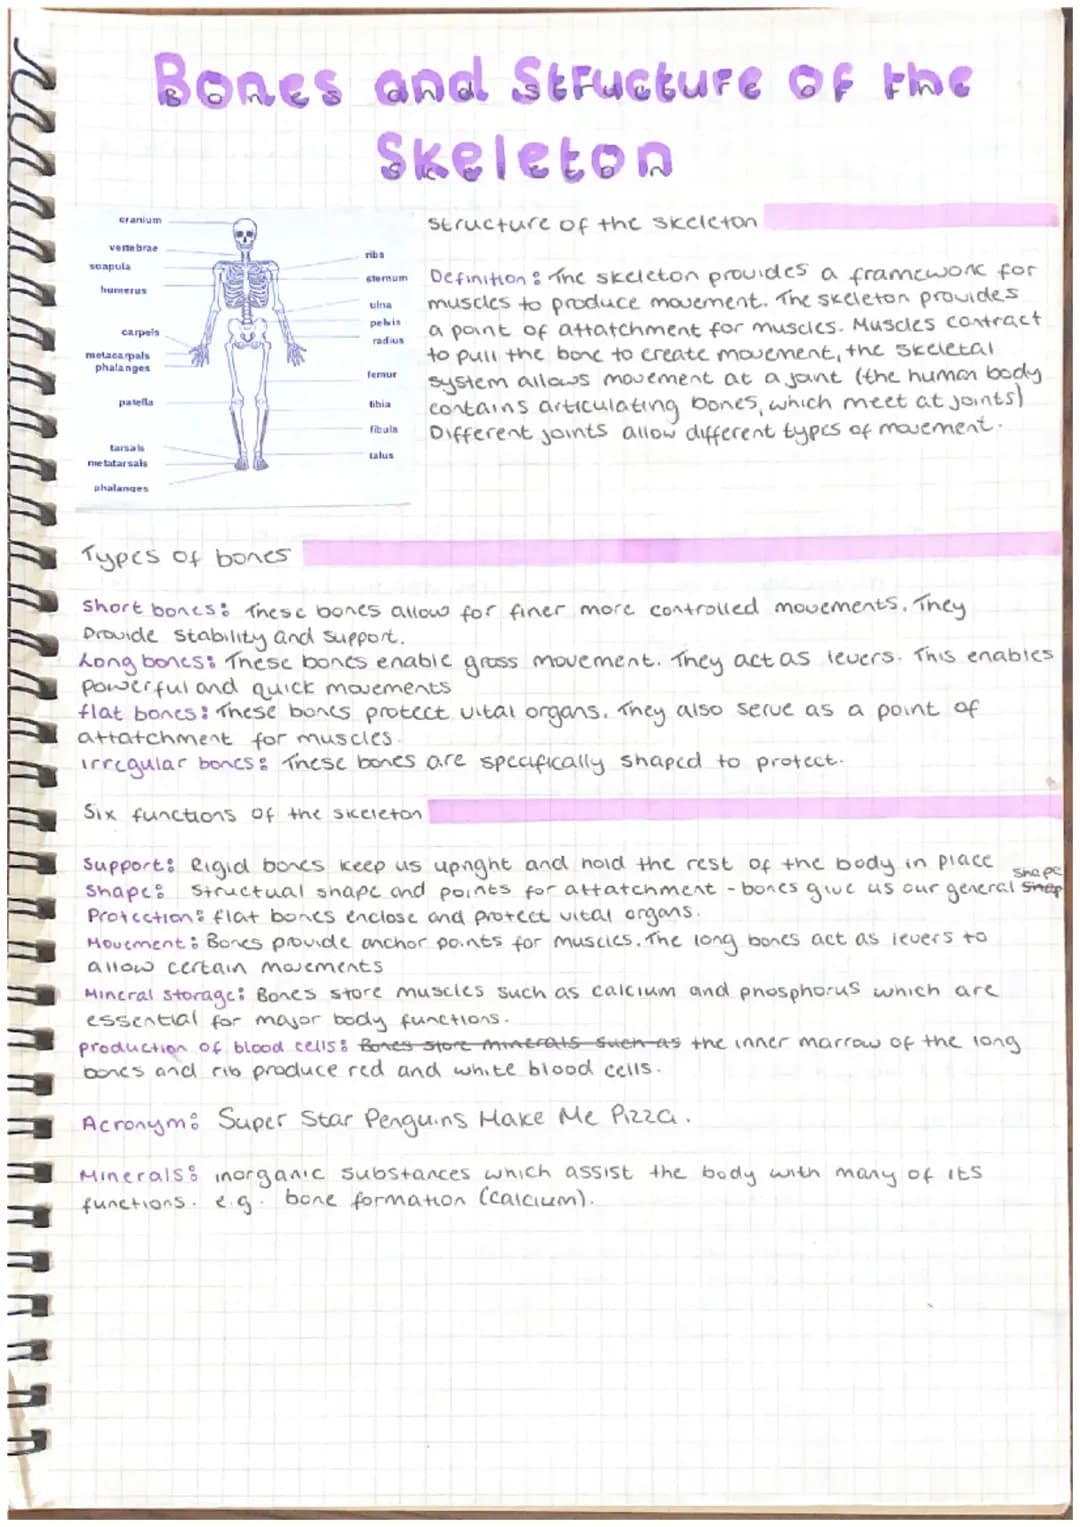 Bones and Structure of the
Skeleton
cranium
vertebrae
scapula
humerus
carpels
metacarpals
phalanges
patella
tarsals
metatarsals
phalanges
ribs
sternum
ulna
pelvis
radius
femur
tibia
fibula
talus
Structure of the skeleton
Definition: The skeleton provides a framework for
muscles to produce movement. The skeleton provides
a point of attatchment for muscles. Muscles contract
to pull the bone to create movement, the skeletal
system allows movement at a joint (the human body
contains articulating bones, which meet at joints)
Different joints allow different types of movement.
Types of bones
Short bones: These bones allow for finer more controlled movements. They
Provide stability and support.
Long bones: These bones enable gross movement. They act as levers. This enables
powerful and quick movements
flat bones: These bones protect vital organs. They also serve as a point of
attatchment for muscles.
irregular bones: These bones are specifically shaped to protect.
Six functions of the skeleton
Support: Rigid bones keep us upright and hold the rest of the body in place
Shape: Structual shape and points for attatchment - bones give us our general Shap shape
Protection: flat bones enclose and protect vital organs.
Movement: Bones provide anchor points for muscles. The long bones act as levers to
allow certain movements
Mineral storage: Bones store muscles such as calcium and phosphorus which are
essential for major body functions.
production of blood cells: Bones store minerals such as the inner marrow of the long
bones and rib produce red and white blood cells.
Acronym: Super Star Penguins Make Me Pizza.
Minerals: inorganic substances which assist the body with many of its
functions. e.g. bone formation (calcium).